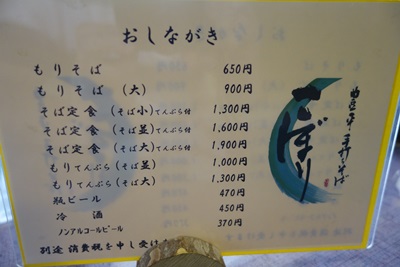 おしながき
もりそば 650円
もりそば (大) 900円
そば定食 (そば小)てんぷら付 1,300円
そば定食 (そば並)てんぷら付 1,600円
そば定食 (そば大)てんぷら付 1,900円
もりてんぷら(そば並) 1,000円
もりてんぷら(そば大) 1,300円
瓶ビール 470円
冷酒 450円
ノンアルコールビール 370円
別途 消費税を申し受け
手打そば